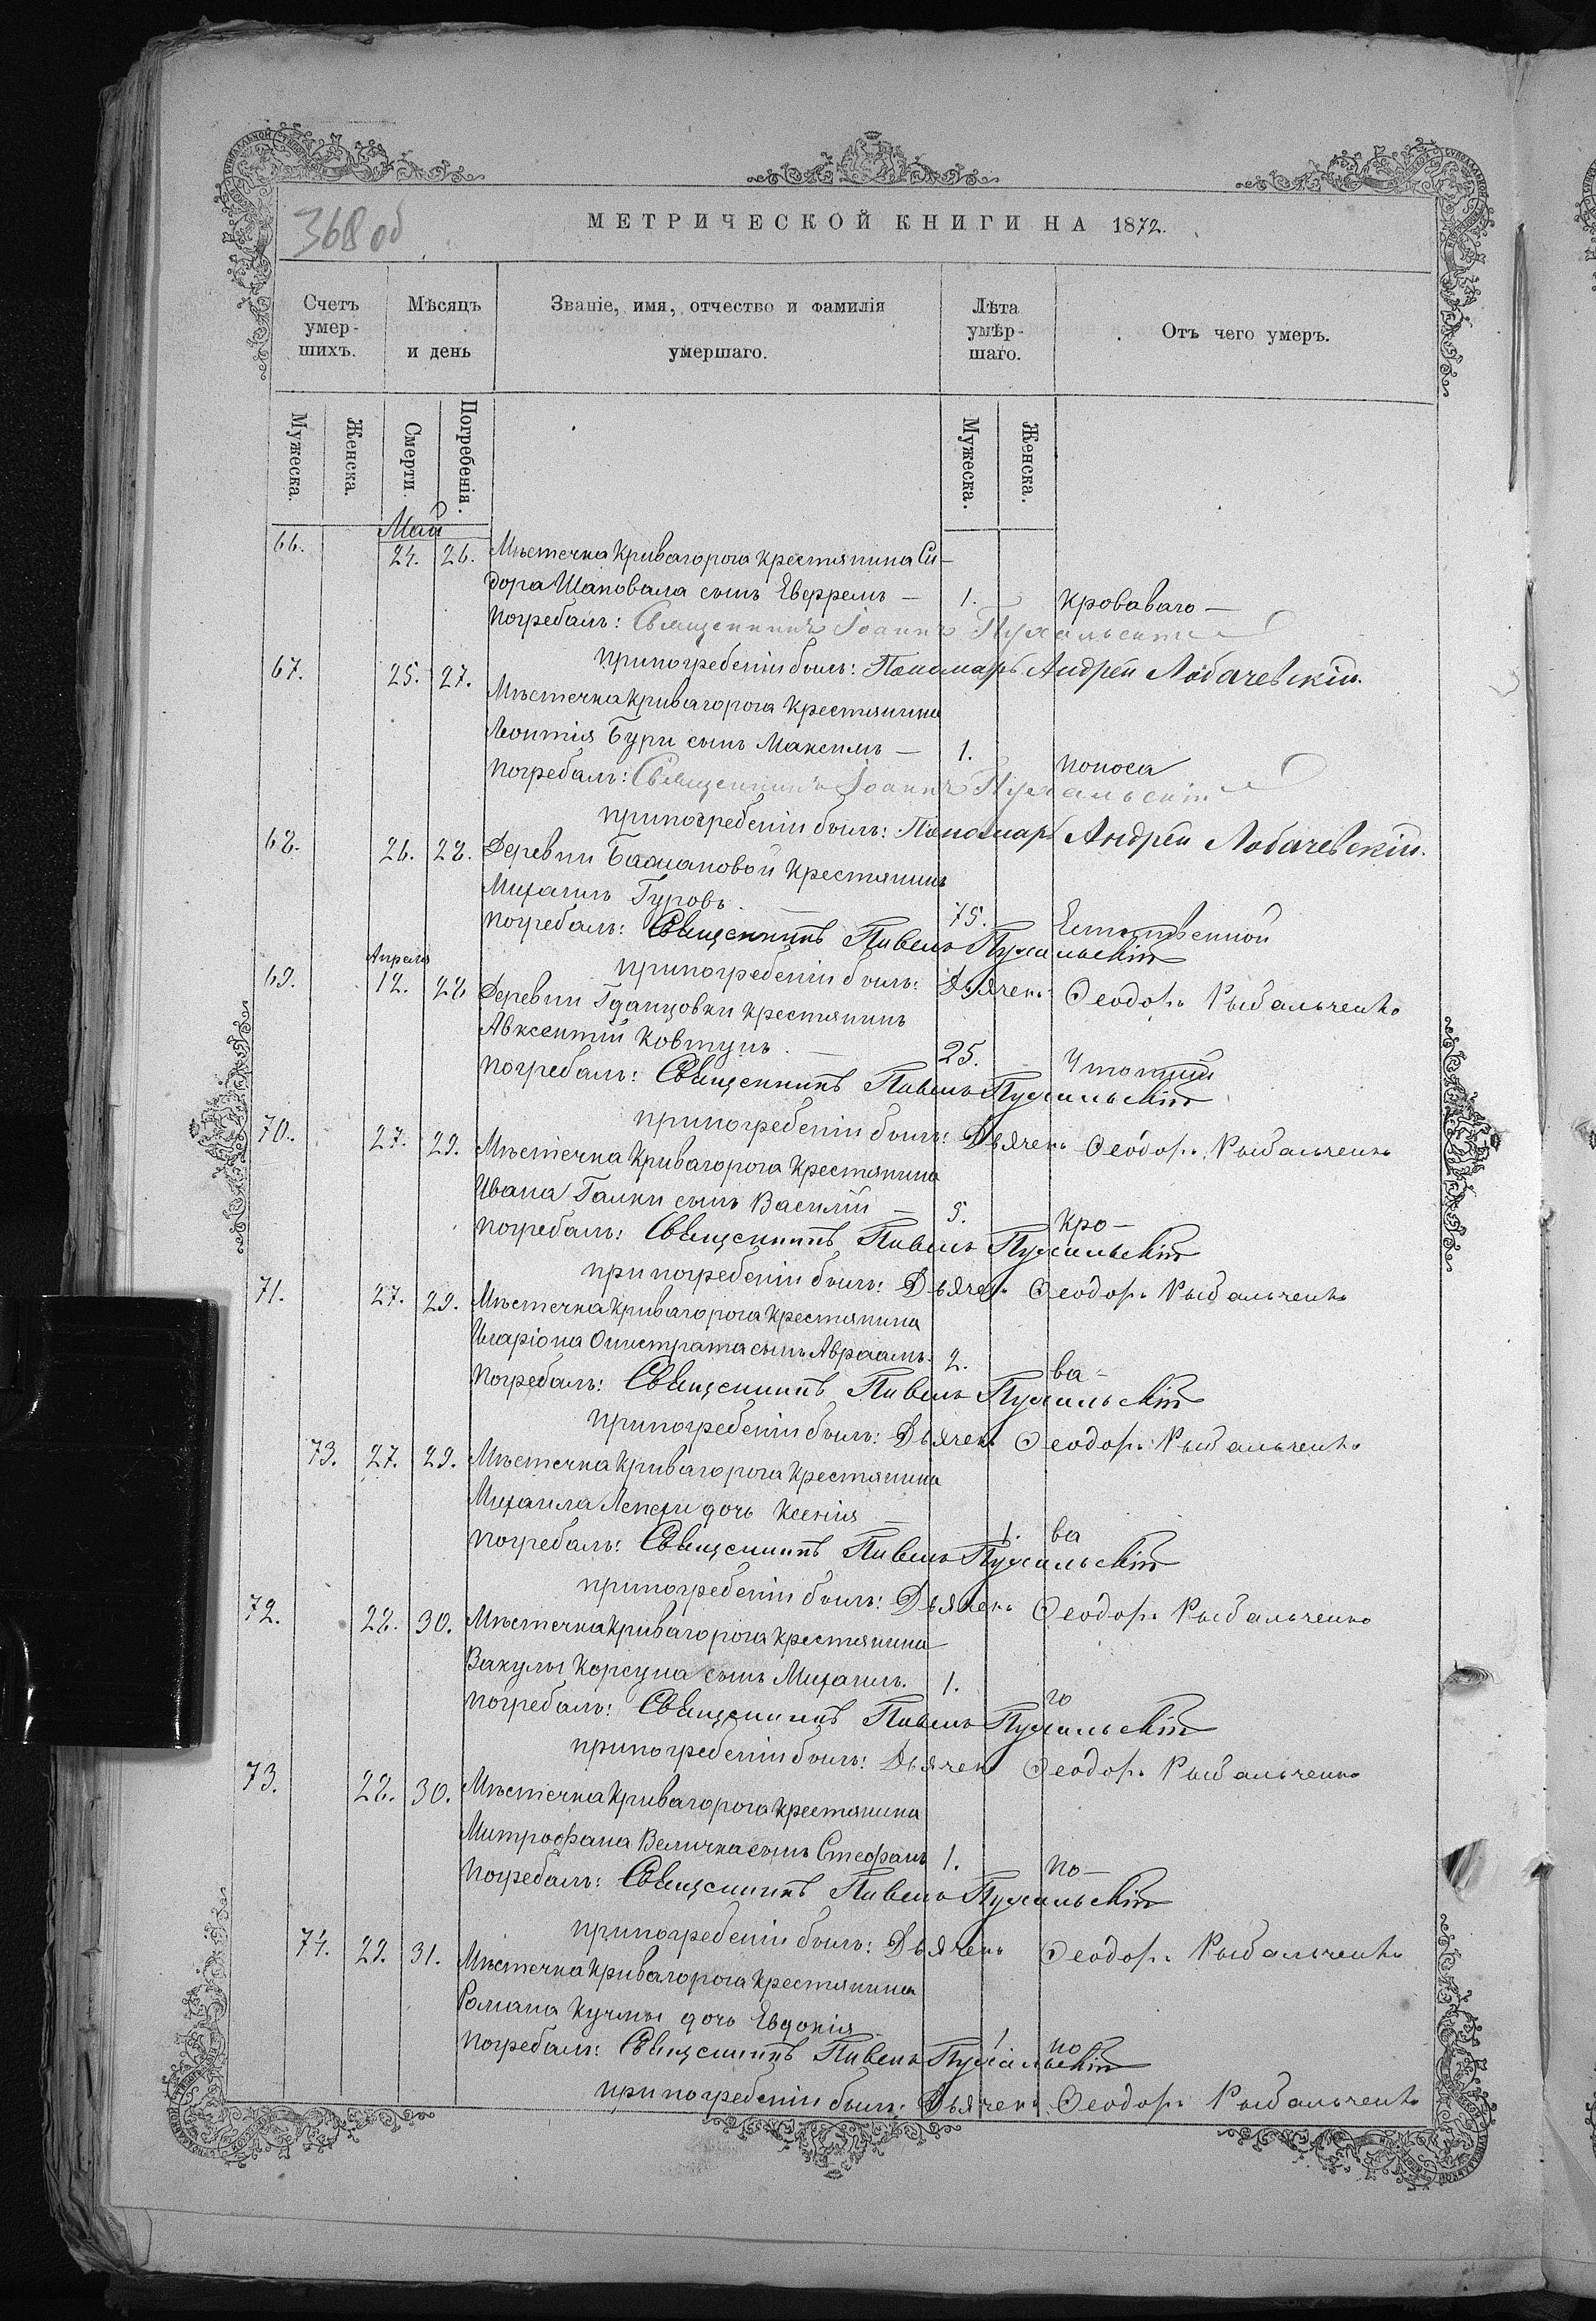 368 об
МЕТРИЧЕСКОЙ КНИГИ НА 1872.
Счетъ умер-шихъ.
Мѣсяцъ и день
Званіе, имя, отчество и фамилія умершаго.
Лѣта умѣр-шаго.
Отъ чего умеръ.
Мужеска.
Женска.
Смерти.
Погребенія.
Мужеска.
Женска.
Май
66. 24. 26. Мѣстечка Кривагорога крестянина Си-
дора Шаповала сынъ Евфремъ — 1. Кроваваго —
Погребалъ: Священникъ Іоаннъ Пухальскій
при погребеніи былъ: Пономарь Андрей Лобачевскій.
67. 25. 27. Мѣстечка Кривагорога крестянина
Леонтія Бури сынъ Максимъ — 1. поноса
Погребалъ: Священникъ Іоаннъ Пухальскій
при погребеніи былъ: Пономарь Андрей Лобачевскій.
68. 26. 28. Деревни Баштановой крестянинъ
Михаилъ Гуровъ. — 75. Естественной
Погребалъ: Священникъ Павелъ Пухальскій
при погребеніи былъ: Дьячекъ Ѳеодоръ Рыбальченко
Апреля
69. 12. 28 Деревни Гданцовки крестянинъ
Авксентій Ковтунъ. — 25. Утопшій
Погребалъ: Священникъ Павелъ Пухальскій
при погребеніи былъ: Дьячекъ Ѳеодоръ Рыбальченко
70. 27. 29. Мѣстечка Кривагорога крестянина
Ивана Галки сынъ Василій — 5. Кро-
Погребалъ: Священникъ Павелъ Пухальскій
при погребеніи былъ: Дьячекъ Ѳеодоръ Рыбальченко
71. 27. 29. Мѣстечка Кривагорога крестянина
Иларіона Оншстрата сынъ Авраамъ. 2. ва-
Погребалъ: Священникъ Павелъ Пухальскій
при погребеніи былъ: Дьячекъ Ѳеодоръ Рыбальченко
73. 27. 29. Мѣстечка Кривагорога крестянина
Михаила Лепехи дочь Ксенія — 1. ва
Погребалъ: Священникъ Павелъ Пухальскій
при погребеніи былъ: Дьячекъ Ѳеодоръ Рыбальченко
72. 28. 30. Мѣстечка Кривагорога крестянина
Вакулы Корсуна сынъ Михаилъ. 1. го
Погребалъ: Священникъ Павелъ Пухальскій
при погребеніи былъ: Дьячекъ Ѳеодоръ Рыбальченко
73. 28. 30. Мѣстечка Кривагорога крестянина
Митрофана Величка сынъ Стефанъ 1. по-
Погребалъ: Священникъ Павелъ Пухальскій
при погребеніи былъ: Дьячекъ Ѳеодоръ Рыбальченко
74. 29. 31. Мѣстечка Кривагорога крестянина
Романа Кучмы дочь Евдокія 1 но
Погребалъ: Священникъ Павелъ Пухальскій
при погребеніи былъ: Дьячекъ Ѳеодоръ Рыбальченко